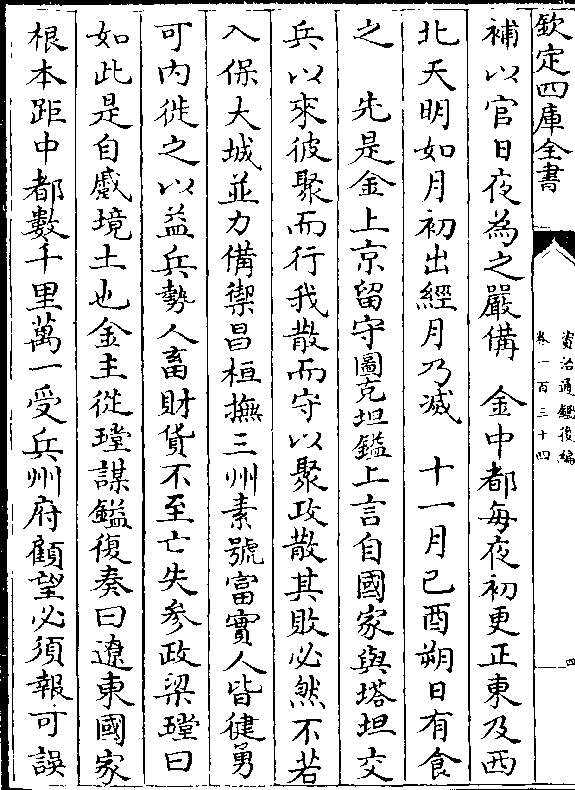 欽定四庫全書
資治通鑑後編
卷一百三十四
四
補以官日夜為之嚴備　金中都每夜初更正東及西
北天明如月初出經月乃滅　十一月己酉朔日有食
之　先是金上京留守圖克坦鎰上言自國家與塔坦交
兵以來彼聚而行我散而守以聚攻散其敗必然不若
入保大城並力備禦昌桓撫三州素號富實人皆健勇
可內徙之以益兵勢人畜財貨不至亡失參政梁瑝曰
如此是自蹙境土也金主從瑝謀鎰復奏曰遼東國家
根本距中都數千里萬一受兵州府顧望必須報可誤